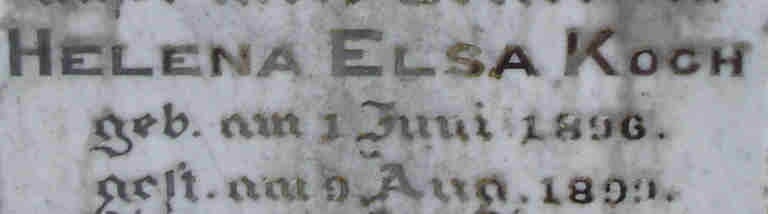 HELENA ELSA KOCH
geb. am 1 Juni 1896.
gest. am 9 Aug. 1899.